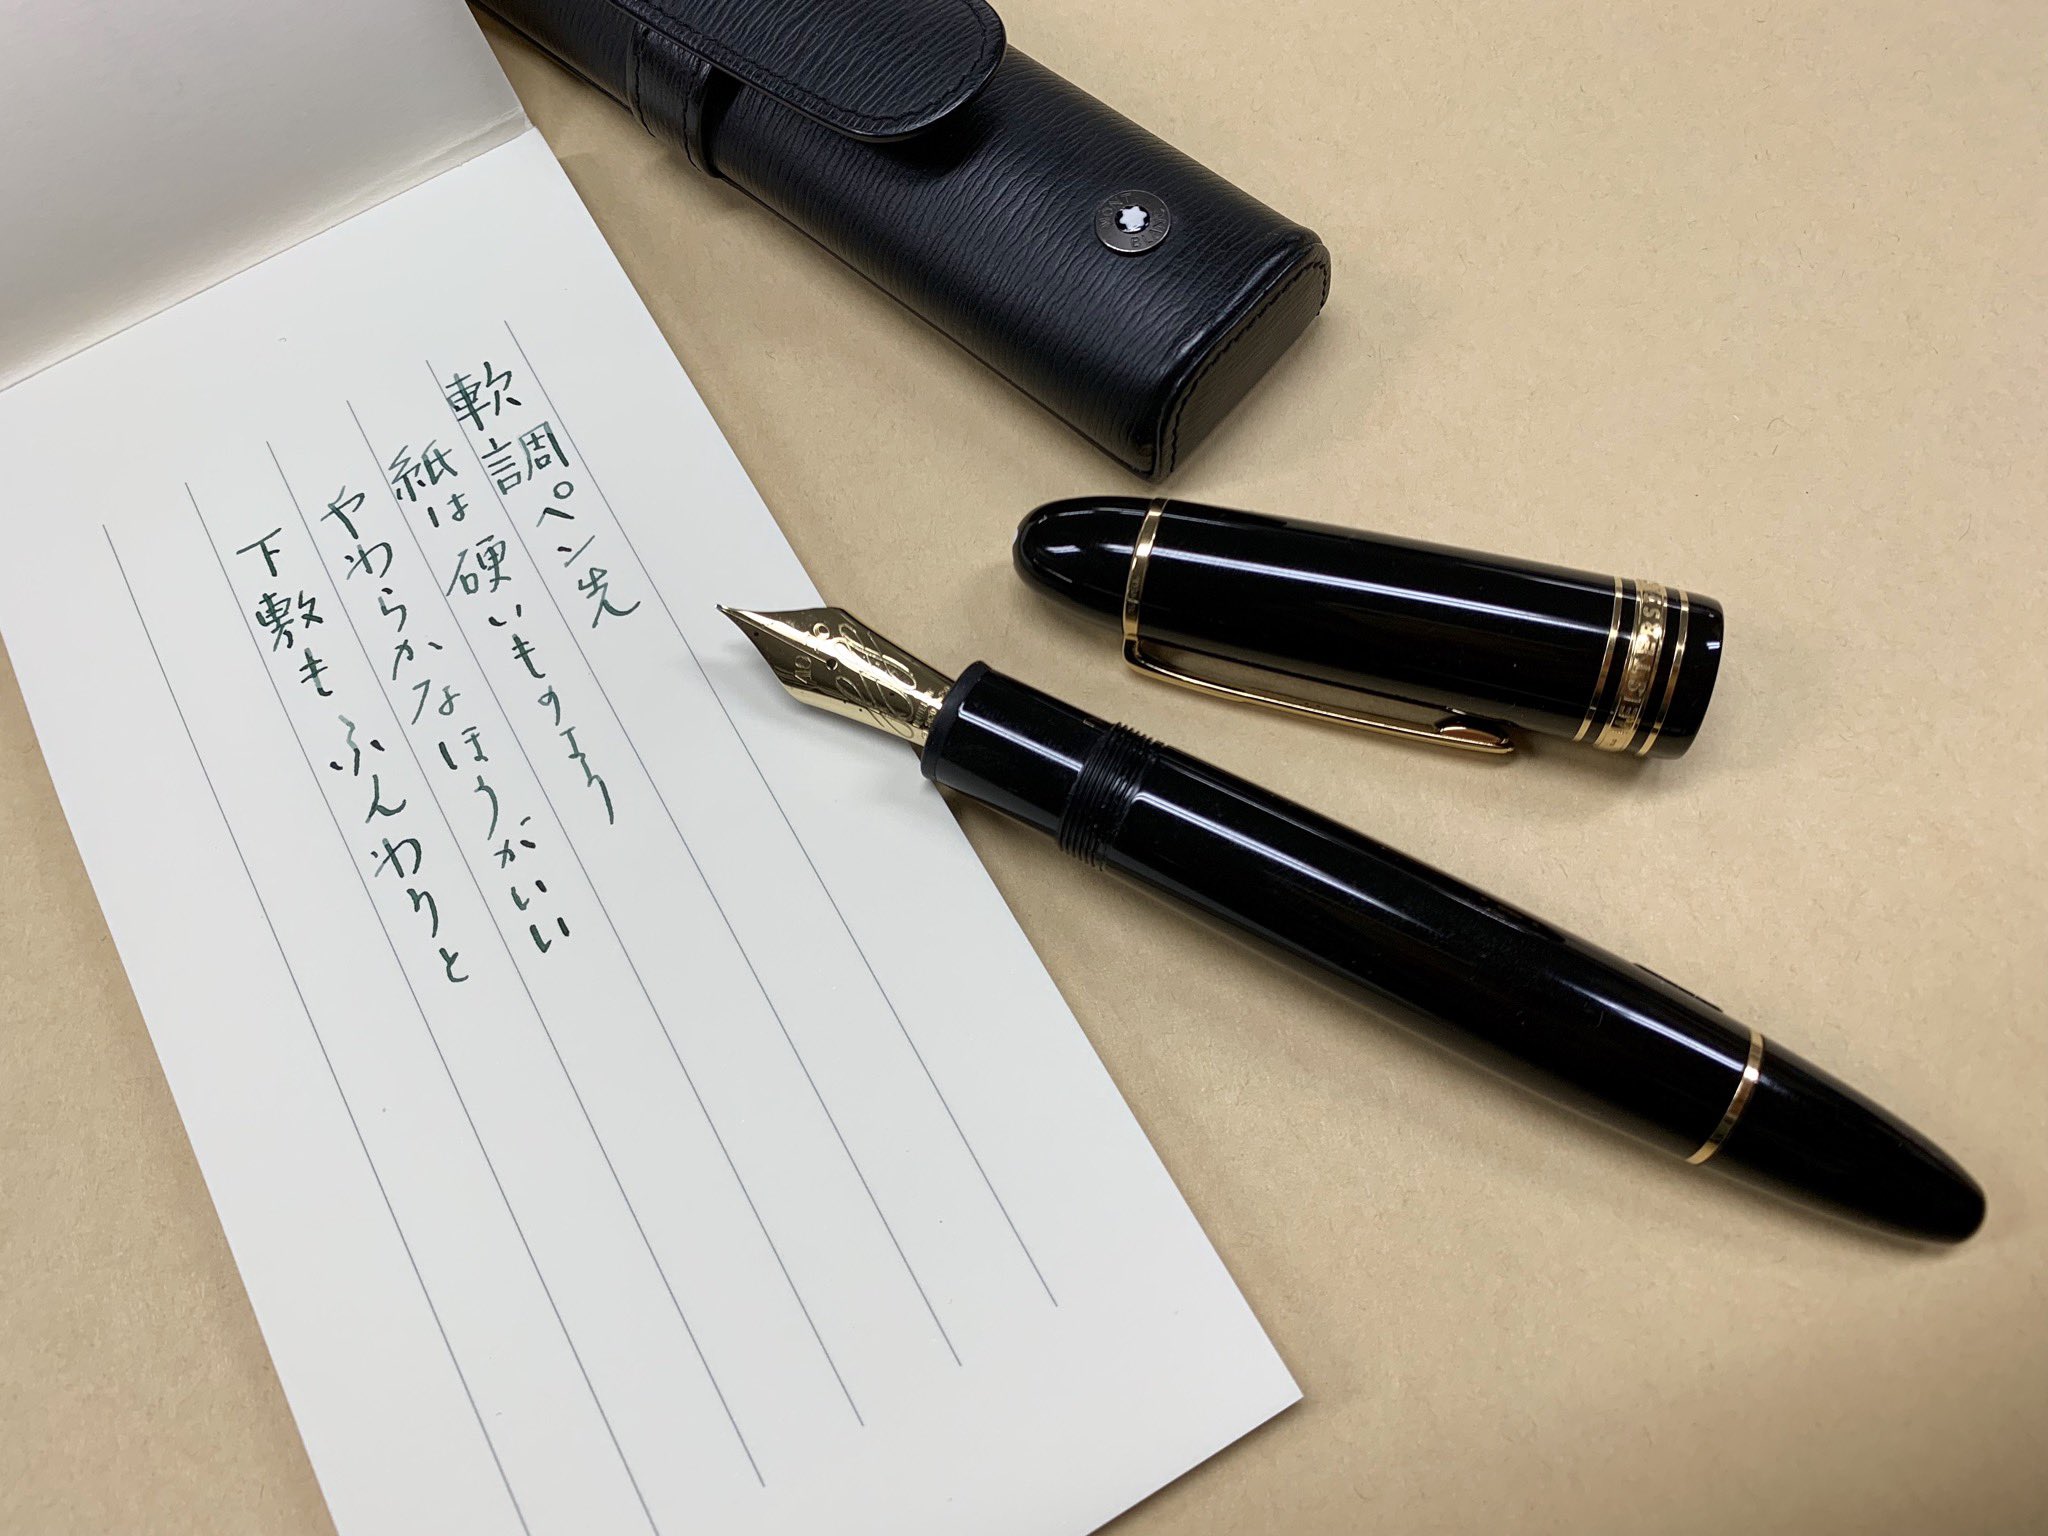 軟調ペン先
紙は硬いものより
やわらかなほうがいい
下敷もふんわりと
MONT
BLANC